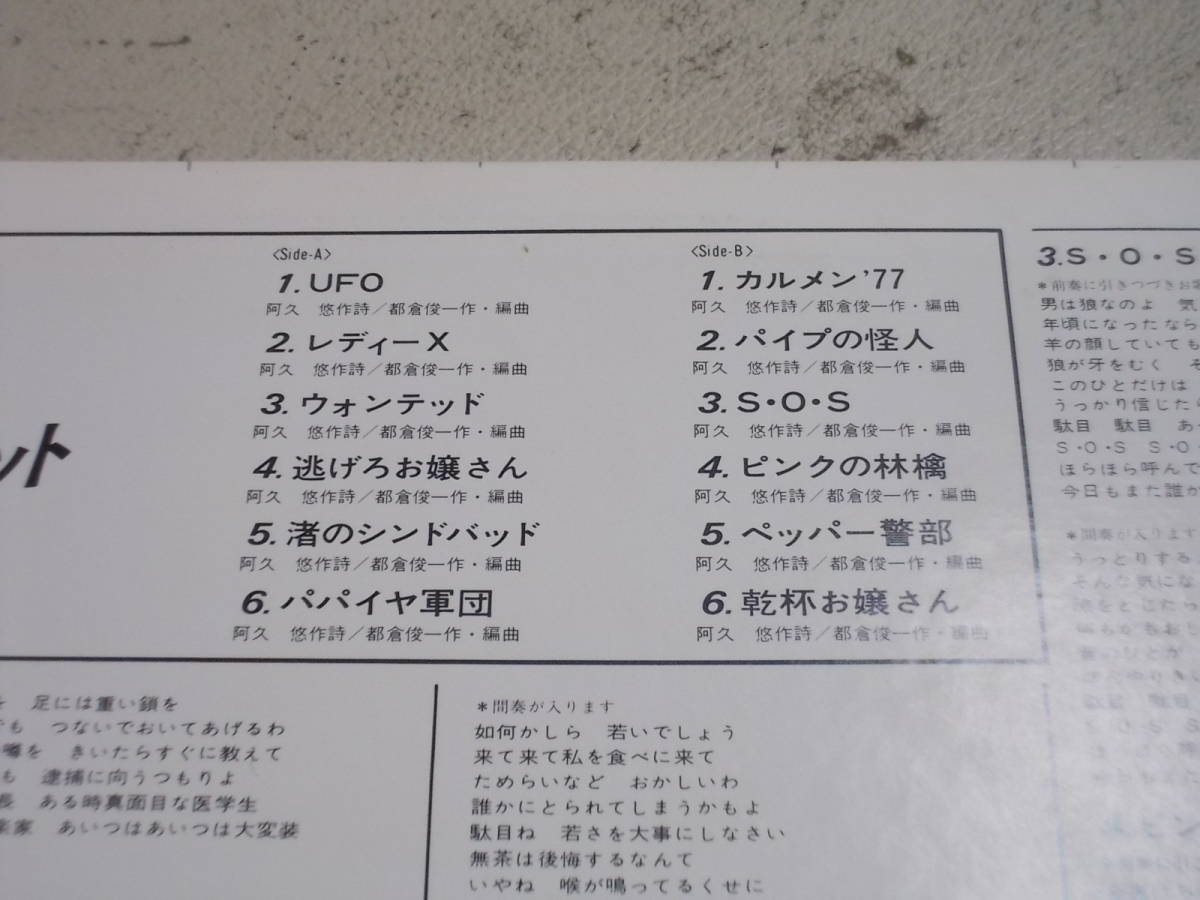 ット
<Side-A>
1. UFO
阿久 悠作詩/都倉俊一作・編曲
2. レディーX
阿久 悠作詩/都倉俊一作・編曲
3. ウォンテッド
阿久 悠作詩/都倉俊一作・編曲
4. 逃げろお嬢さん
阿久 悠作詩/都倉俊一作・編曲
5. 渚のシンドバッド
阿久 悠作詩/都倉俊一作・編曲
6. パパイヤ軍団
阿久 悠作詩/都倉俊一作・編曲
<Side-B>
1. カルメン'77
阿久 悠作詩/都倉俊一作・編曲
2. パイプの怪人
阿久 悠作詩/都倉俊一作・編曲
3. S・O・S
阿久 悠作詩/都倉俊一作・編曲
4. ピンクの林檎
阿久 悠作詩/都倉俊一作・編曲
5. ペッパー警部
阿久 悠作詩/都倉俊一作・編曲
6. 乾杯お嬢さん
阿久 悠作詩/都倉俊一作・編曲
3.S・O・S
*前奏に引きつづきお
男は狼なのよ 気
年頃になったなら
羊の顔していても
狼が牙をむく そ
このひとだけは
うっかり信じたら
駄目 駄目 あ
S・O・S S・O
ほらほら呼んで
今日もまた誰か
*間奏が入ります
うっとりする
そんな気にな
足には重い鎖を
でも つないでおいてあげるわ
噂を きいたらすぐに教えて
も 逮捕に向うつもりよ
長 ある時真面目な医学生
楽家 あいつはあいつは大変装
*間奏が入ります
如何かしら 若いでしょう
来て来て私を食べに来て
ためらいなど おかしいわ
誰かにとられてしまうかもよ
駄目ね 若さを大事にしなさい
無茶は後悔するなんて
いやね 喉が鳴ってるくせに